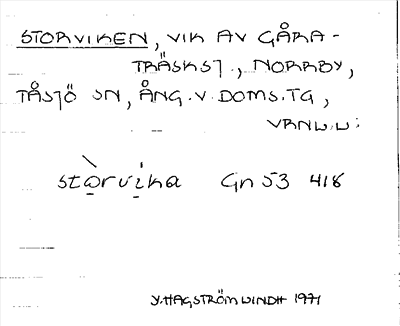 STORVIKEN, VIK AV GÅRA-
TRÄSKSJ., NORRBY,
TÅSJÖ SN, ÅNG.V.DOMS.TG,
stòrvika Gn 53 418
Y. HAGSTRÖM WINDH 1971